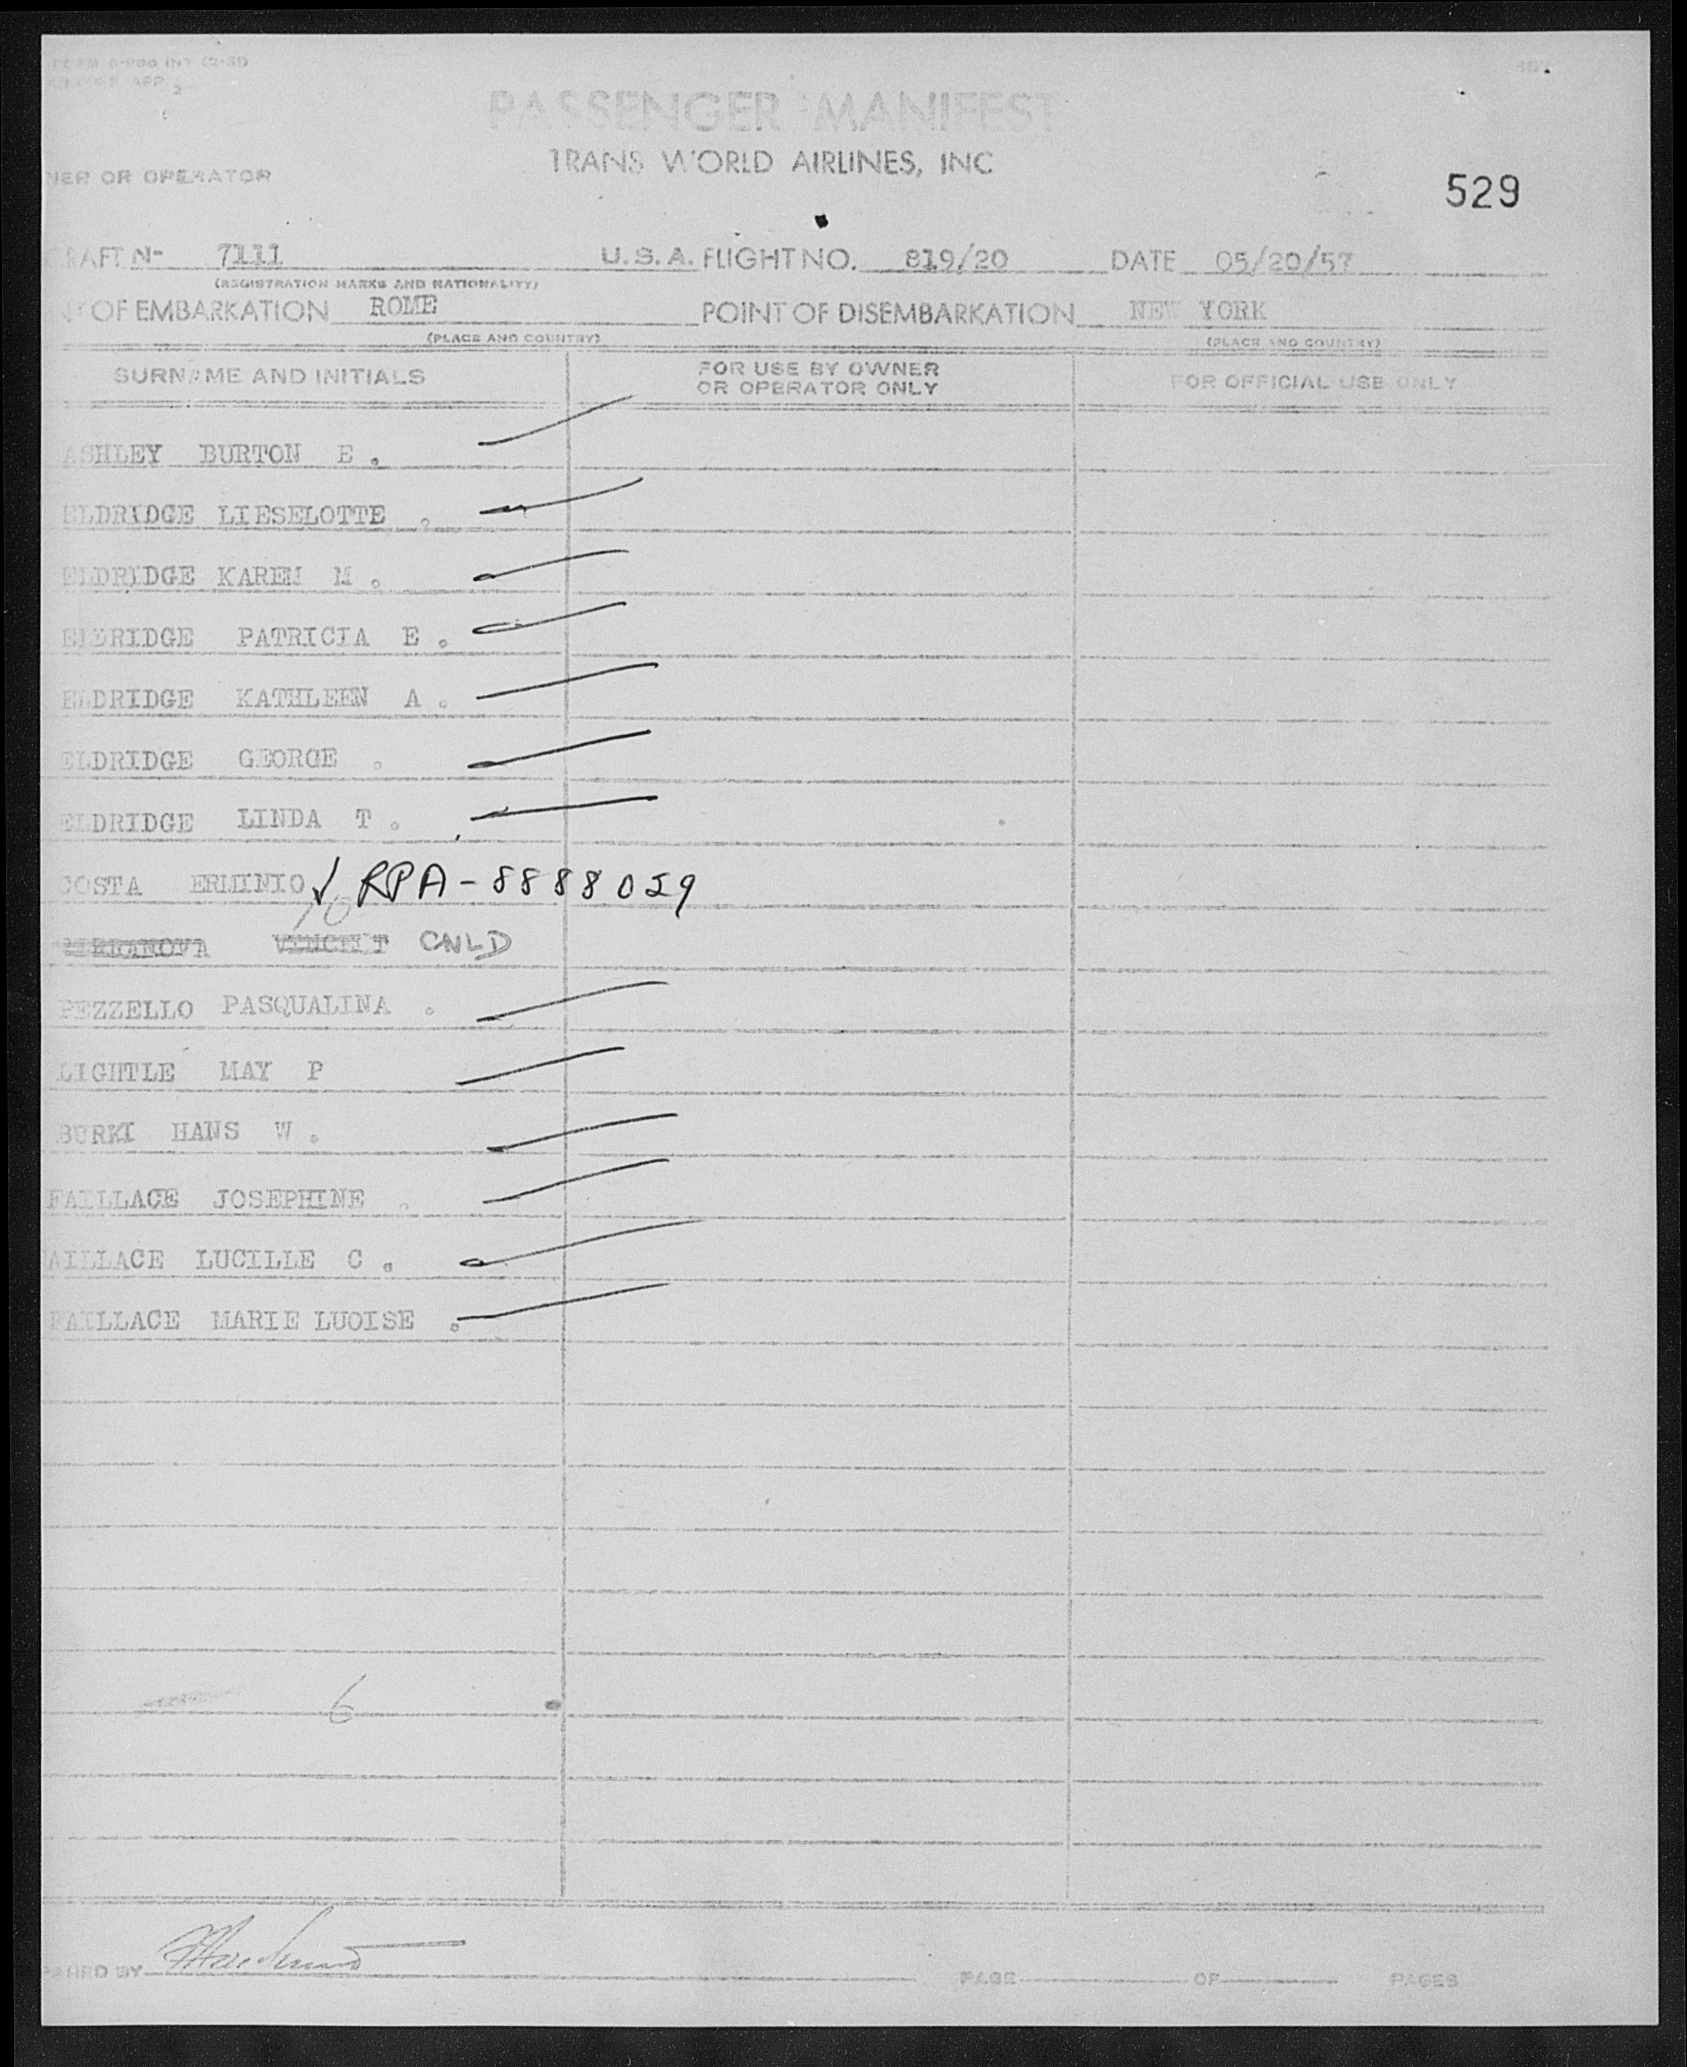 PASSENGER MANIFEST
TRANS WORLD AIRLINES, INC
NER OR OPERATOR
529
RAFT N- 7111 U.S.A. FLIGHT NO. 819/20 DATE 05/20/57
(REGISTRATION MARKS AND NATIONALITY)
OF EMBARKATION ROME POINT OF DISEMBARKATION NEW YORK
(PLACE AND COUNTRY) (PLACE AND COUNTRY)
SURNAME AND INITIALS FOR USE BY OWNER OR OPERATOR ONLY FOR OFFICIAL USE ONLY
ASHLEY BURTON E.
ELDRIDGE LIESELOTTE .
ELDRIDGE KAREN M.
ELDRIDGE PATRICIA E.
ELDRIDGE KATHLEEN A.
ELDRIDGE GEORGE .
ELDRIDGE LINDA T.
COSTA ERMINIO ✓ RPA-8888029
CNLD
PEZZELLO PASQUALINA .
LIGHTLE MAY P
BURKI HANS W.
FAILLACE JOSEPHINE .
AILLACE LUCILLE C.
FAILLACE MARIE LUOISE .
6
PARED BY PAGE OF PAGES